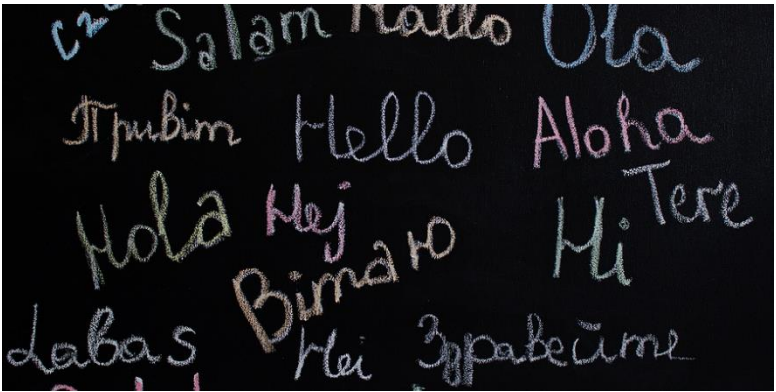 Salam Hallo Ola
Привіт Hello Aloha
Tere
Hola Hej Hi
Вітаю
Labas Hei Здравейте